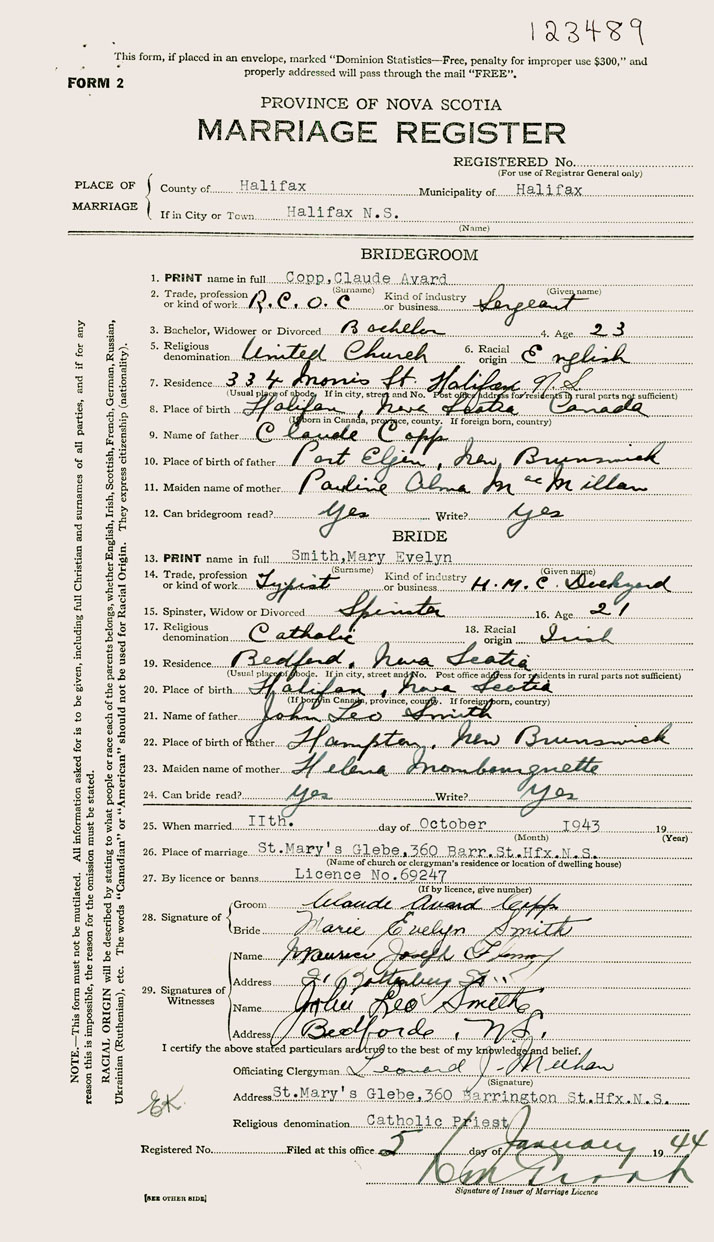 123489
This form, if placed in an envelope, marked "Dominion Statistics—Free, penalty for improper use $300," and
properly addressed will pass through the mail "FREE".
FORM 2
PROVINCE OF NOVA SCOTIA
MARRIAGE REGISTER
REGISTERED No.
(For use of Registrar General only)
PLACE OF MARRIAGE
County of Halifax Municipality of Halifax
If in City or Town Halifax N.S.
(Name)
BRIDEGROOM
1. PRINT name in full Copp,Claude Avard
(Surname) (Given name)
2. Trade, profession or kind of work R.C.O.C Kind of industry or business Sergeant
3. Bachelor, Widower or Divorced Bachelor 4. Age 23
5. Religious denomination United Church 6. Racial origin English
7. Residence 334 Morris St. Halifax N.S
(Usual place of abode. If in city, street and No. Post office address for residents in rural parts not sufficient)
8. Place of birth Halifax, Nova Scotia Canada
(If born in Canada, province, county. If foreign born, country)
9. Name of father Claude Copp
10. Place of birth of father Port Elgin, New Brunswick
11. Maiden name of mother Pauline Alma MacMillan
12. Can bridegroom read? Yes Write? Yes
BRIDE
13. PRINT name in full Smith,Mary Evelyn
(Surname) (Given name)
14. Trade, profession or kind of work Typist Kind of industry or business H.M.C. Dockyard
15. Spinster, Widow or Divorced Spinster 16. Age 21
17. Religious denomination Catholic 18. Racial origin Irish
19. Residence Bedford, Nova Scotia
(Usual place of abode. If in city, street and No. Post office address for residents in rural parts not sufficient)
20. Place of birth Halifax, Nova Scotia
(If born in Canada, province, county. If foreign born, country)
21. Name of father John Leo Smith
22. Place of birth of father Hampton, New Brunswick
23. Maiden name of mother Helena Mombourquette
24. Can bride read? Yes Write? Yes
25. When married IIth. day of October 1943 19
(Month) (Year)
26. Place of marriage St.Mary's Glebe,360 Barr.St.Hfx.N.S.
(Name of church or clergyman's residence or location of dwelling house)
27. By licence or banns Licence No.69247
(If by licence, give number)
28. Signature of
Groom Claude Avard Copp
Bride Marie Evelyn Smith
29. Signatures of Witnesses
Name Maurice Joseph
Address St.
Name John Leo Smith
Address Bedford, N.S.
I certify the above stated particulars are true to the best of my knowledge and belief.
Officiating Clergyman Leonard J. Meehan
(Signature)
Address St.Mary's Glebe,360 Barrington St.Hfx.N.S.
Religious denomination Catholic Priest
EK.
Registered No. Filed at this office 5 day of January 1944
Signature of Issuer of Marriage Licence
[SEE OTHER SIDE]
NOTE.—This form must not be mutilated. All information asked for is to be given, including full Christian and surnames of all parties, and if for any
reason this is impossible, the reason for the omission must be stated.
RACIAL ORIGIN will be described by stating to what people or race each of the parents belongs, whether English, Irish, Scottish, French, German, Russian,
Ukrainian (Ruthenian), etc. The words "Canadian" or "American" should not be used for Racial Origin. They express citizenship (nationality).